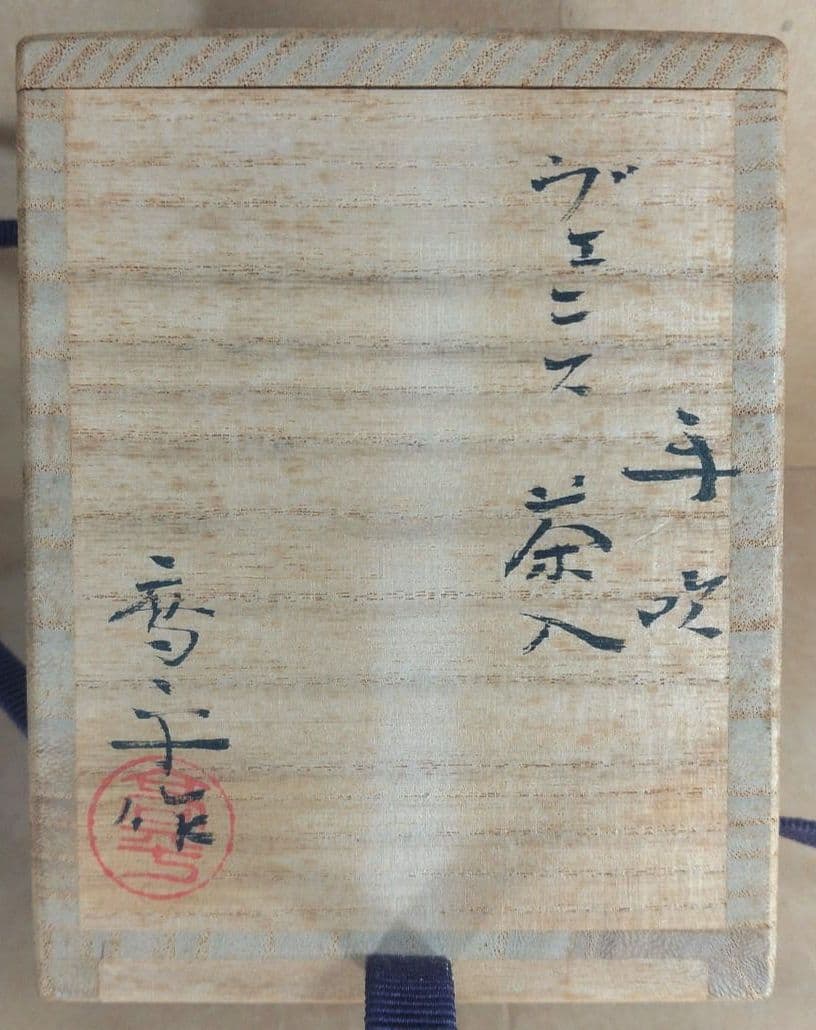 手吹
ヴェニス 茶入
喬平作